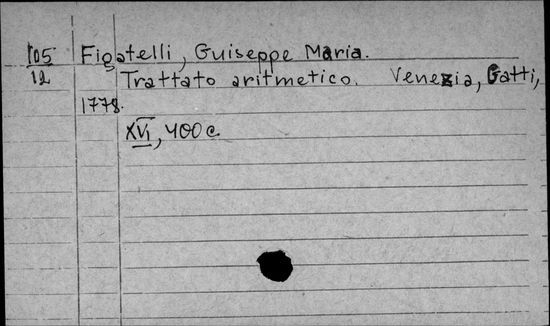 105 Figatelli, Guiseppe Maria.
12 Trattato aritmetico. Venezia, Gatti,
1778.
XVI, 400 c.